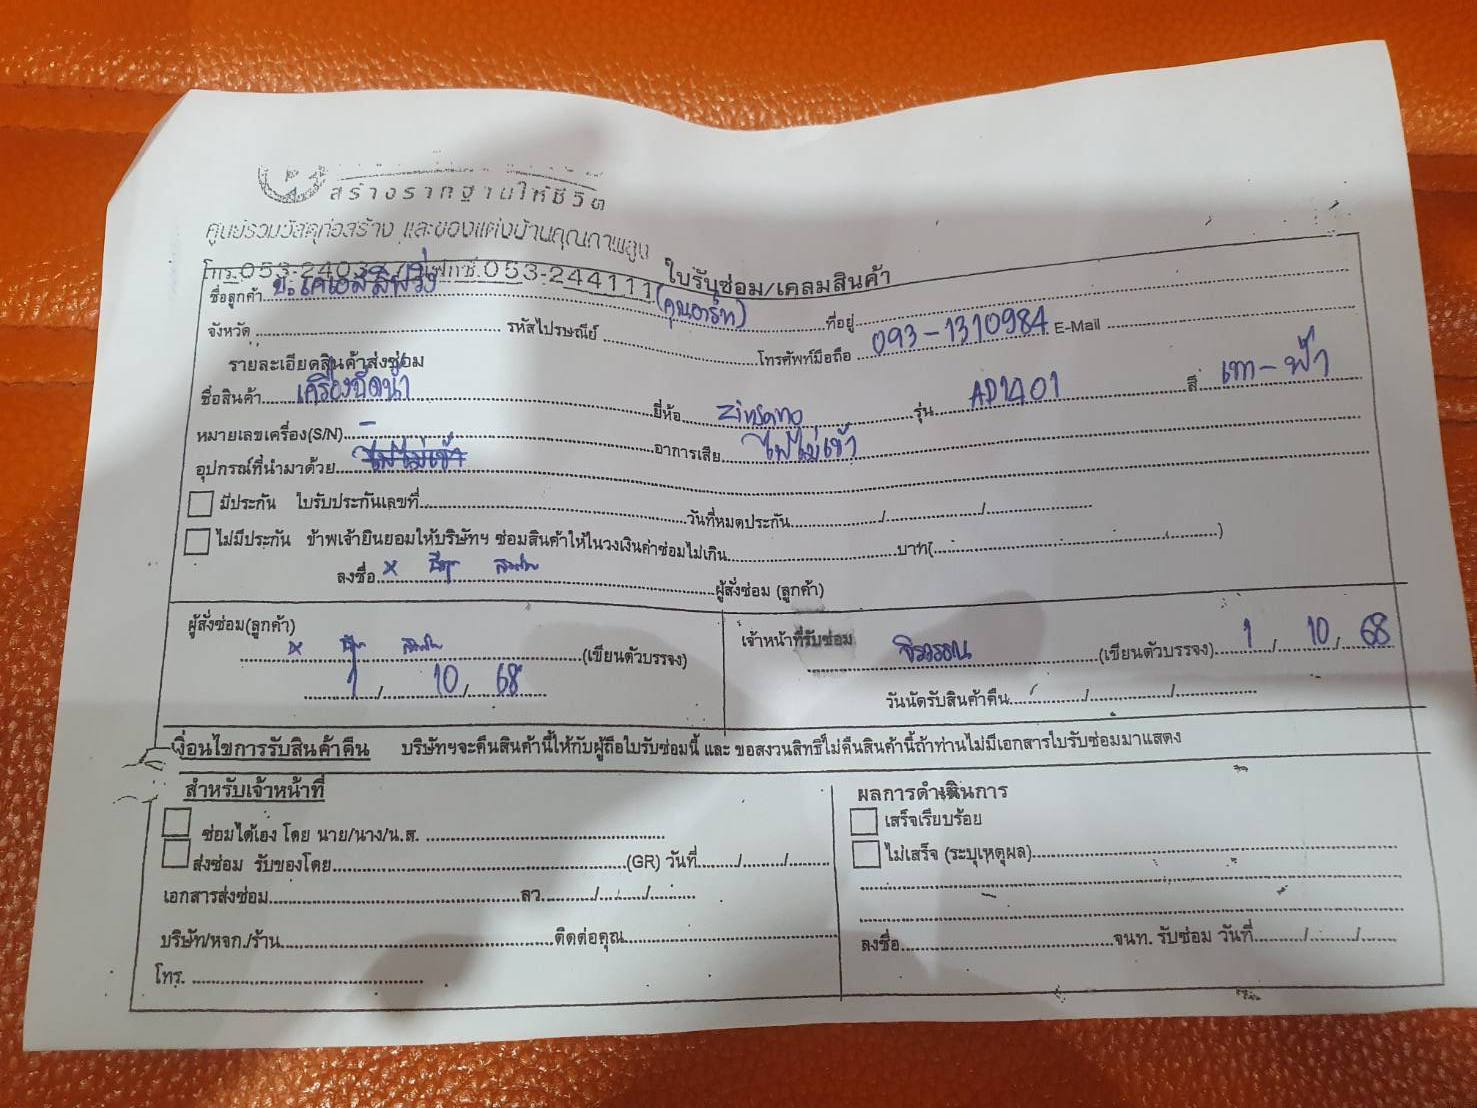 สร้างรากฐานให้ชีวิต
ศูนย์รวมวัสดุก่อสร้าง และของแต่งบ้านคุณภาพสูง
โทร.053-24033 แฟกซ์.053-244111 ใบรับซ่อม/เคลมสินค้า
ชื่อลูกค้า บ. (คุณอาร์ท) ที่อยู่
จังหวัด รหัสไปรษณีย์ โทรศัพท์มือถือ 093-1310984 E-Mail
รายละเอียดสินค้าส่งซ่อม
ชื่อสินค้า เครื่องฉีดน้ำ ยี่ห้อ Zinsano รุ่น AP1401 สี เทา-ฟ้า
หมายเลขเครื่อง(S/N) - อาการเสีย ไฟไม่เข้า
อุปกรณ์ที่นำมาด้วย ไฟไม่เข้า
มีประกัน ใบรับประกันเลขที่ วันที่หมดประกัน / /
ไม่มีประกัน ข้าพเจ้ายินยอมให้บริษัทฯ ซ่อมสินค้าให้ในวงเงินค่าซ่อมไม่เกิน บาท( )
ลงชื่อ x ผู้สั่งซ่อม (ลูกค้า)
ผู้สั่งซ่อม(ลูกค้า)
x (เขียนตัวบรรจง)
1 / 10 / 68
เจ้าหน้าที่รับซ่อม จิรวรรณ (เขียนตัวบรรจง) 1 / 10 / 68
วันนัดรับสินค้าคืน / /
เงื่อนไขการรับสินค้าคืน บริษัทฯจะคืนสินค้านี้ให้กับผู้ถือใบรับซ่อมนี้ และ ขอสงวนสิทธิ์ไม่คืนสินค้านี้ถ้าท่านไม่มีเอกสารใบรับซ่อมมาแสดง
สำหรับเจ้าหน้าที่
ซ่อมได้เอง โดย นาย/นาง/น.ส.
ส่งซ่อม รับของโดย (GR) วันที่ / /
เอกสารส่งซ่อม ลว / /
บริษัท/หจก./ร้าน ติดต่อคุณ
โทร.
ผลการดำเนินการ
เสร็จเรียบร้อย
ไม่เสร็จ (ระบุเหตุผล)
ลงชื่อ จนท. รับซ่อม วันที่ / /